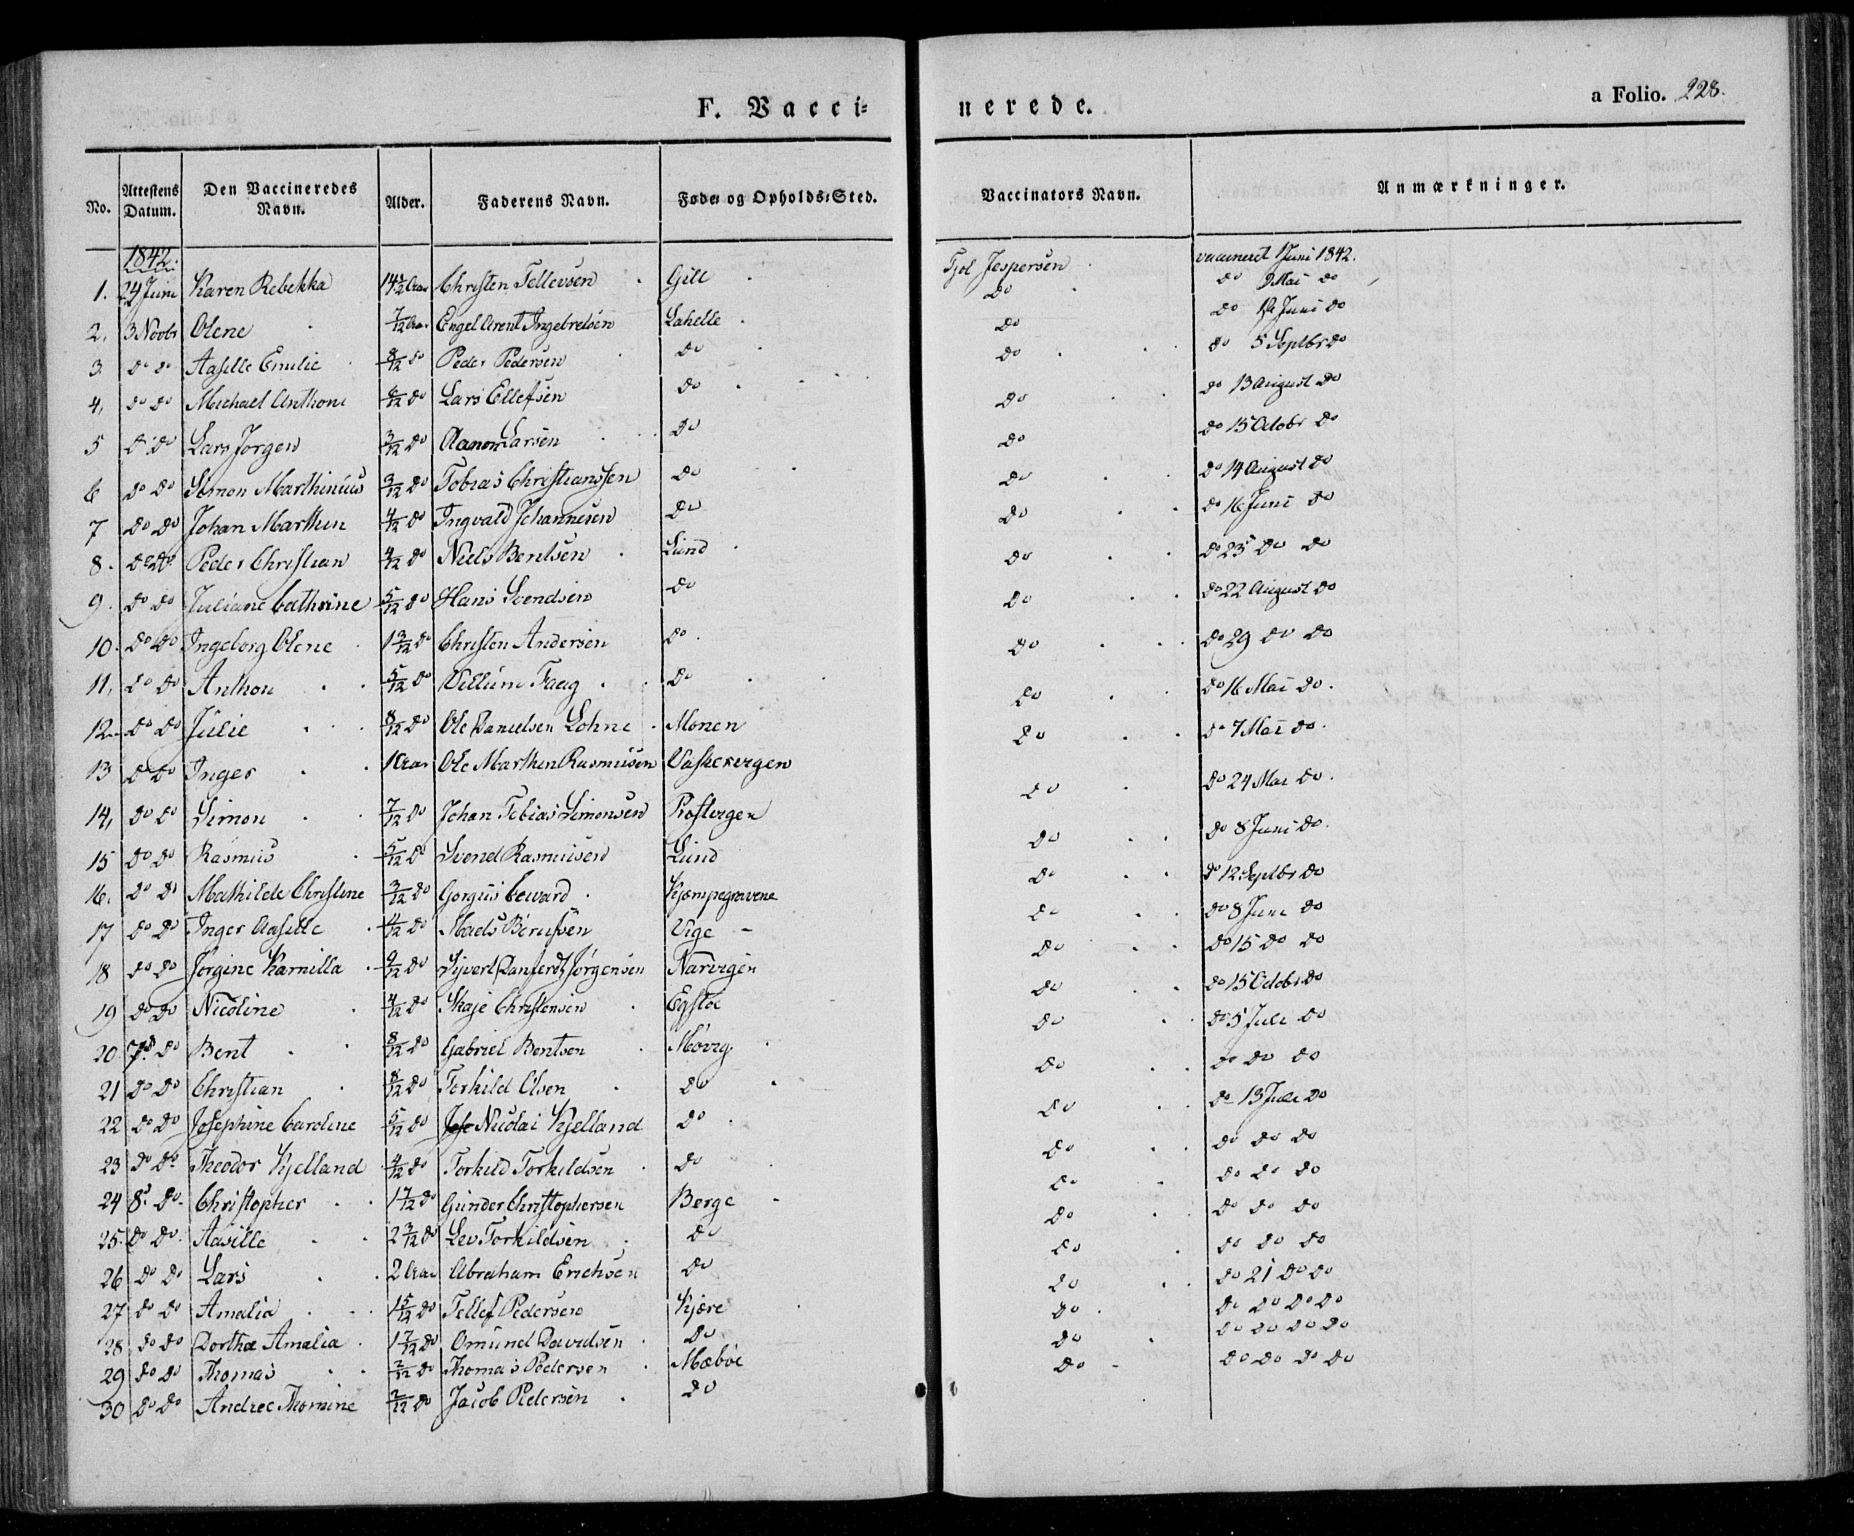 F. Vacci- nerede. a Folio. 228.
No. Attestens Datum. Den Vaccineredes Navn. Alder. Faderens Navn. Føde- og Opholds-Sted. Vaccinators Navn. Anmærkninger.
1842.
1. 24 Juni Karen Rebekka 14 1/2 Aar Christen Tellevsen Gill Jespersen vaccineret 1 Juni 1842.
2. 3 Novbr Olene 7/12 Aar Engel Arent Ingebretsen Lahelle do do 9 Mai do
3. do do Aasille Emilie 8/12 do Peder Pedersen do do do 12 Juni do
4, do do Michael Anthon 8/12 do Lars Ellefsen do do do 5 Septbr do
5 do do Lars Jørgen 3/12 do Aanon Larsen do do do 13 August do
6 do do Simon Marthinius 3/12 do Tobias Christianssen do do do 15 Octobr do
7 do do Johan Marthin 4/12 do Ingvald Johannesen do do do 14 August do
8. do do Peder Christian 4/12 do Niels Bentsen Lund do do 16 Juni do
9. do do Juliane Cathrine 5/12 do Hans Svendsen do do do 25 do do
10. do do Ingeborg Olene 1 3/12 do Christen Andersen do do do 22 August do
11, do do Anthon 5/12 do Villum Faag do do do 29 do do
12 do do Julie 8/12 do Ole Danielsen Lohne Monen do do 16 Mai do
13 do do Inger 1 Aar Ole Marthin Rasmusen Vaskervigen do do 7 Mai do
14, do do Simon 7/12 do Johan Tobias Simonsen Prostvigen do do 24 Mai do
15 do do Rasmus 5/12 do Svend Rasmusen Lund do do 8 Juni do
16. do do Mathilde Christine 3/12 do Gorgus Ceward Kjæmpegravene do do 12 Septbr do
17 do do Inger Aasille 4/12 do Mads Berufsen Vige do do 8 Juni do
18 do do Jørgine Karnilla 9/12 do Sivert Danferdt Jørgensen Narvigen do do 15 do do
19 do do Nicoline 4/12 do Skaje Christensen Egstøe do do 15 Octobr do
20 7d do Bent 8/12 do Gabriel Bentsen Møvig do do 5 Juli do
21 do do Christian 8/12 do Torkild Olsen do do do do do
22 do do Josephine Caroline 5/12 do Nicolai Kjelland do do do 13 Juli do
23 do do Theodor Kjelland 4/12 do Torkild Torkildsen do do do do do
24 8d do Christopher 1 7/12 do Gunder Christophersen Berge do do do do
25 do do Aasille 2 3/12 do Lev Torkildsen do do do do do
26 do do Lars 2 Aar Abraham Erichsen do do do do do
27 do do Amalia 1 5/12 do Tellef Pedersen Kjære do do 21 do do
28 do do Dorthæ Amalia 1 7/12 do Omund Davidsen do do do do do do
29 do do Thomas 2/12 do Thomas Pedersen Mæbøe do do do do do
30 do do Andree Thomine 2/12 do Jacob Pedersen do do do do do do